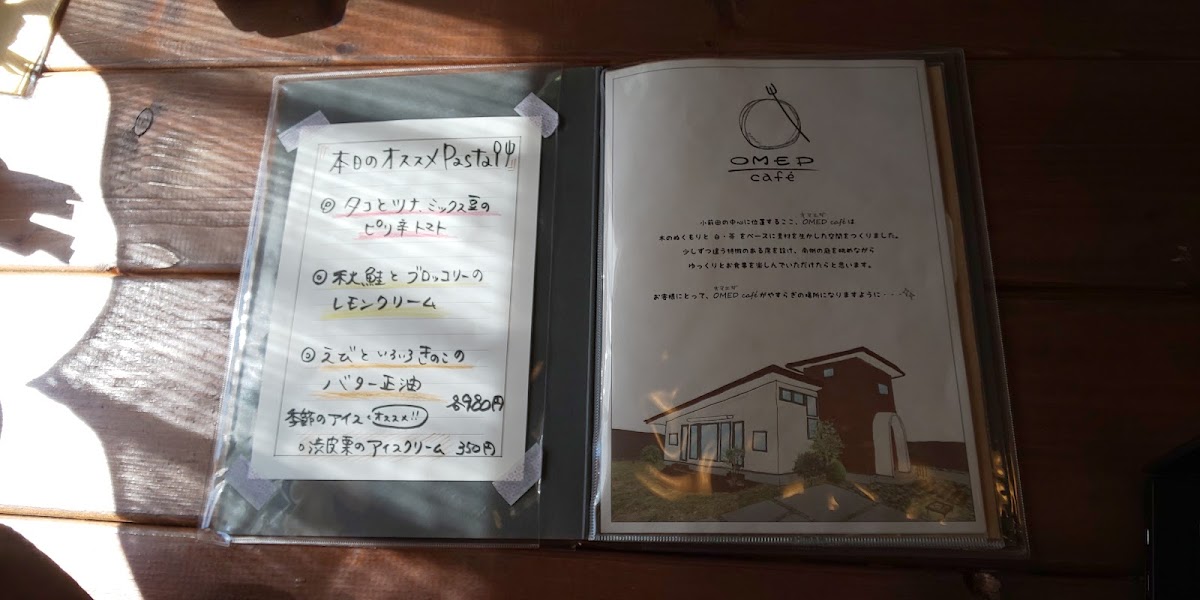 本日のオススメPasta
タコとツナ、ミックス豆の
ピリ辛トマト
秋鮭とブロッコリーの
レモンクリーム
えびといろいろきのこの
バター正油
各980円
季節のアイス オススメ!!
渋皮栗のアイスクリーム 350円
OMED
café
小前田の中心に位置するここ、OMED caféは
木のぬくもりと 白・茶 をベースに素材を生かした空間をつくりました。
少しずつ違う特徴のある席を設け、南側の庭を眺めながら
ゆっくりとお食事を楽しんでいただけたらと思います。
お客様にとって、OMED caféがやすらぎの場所になりますように・・・